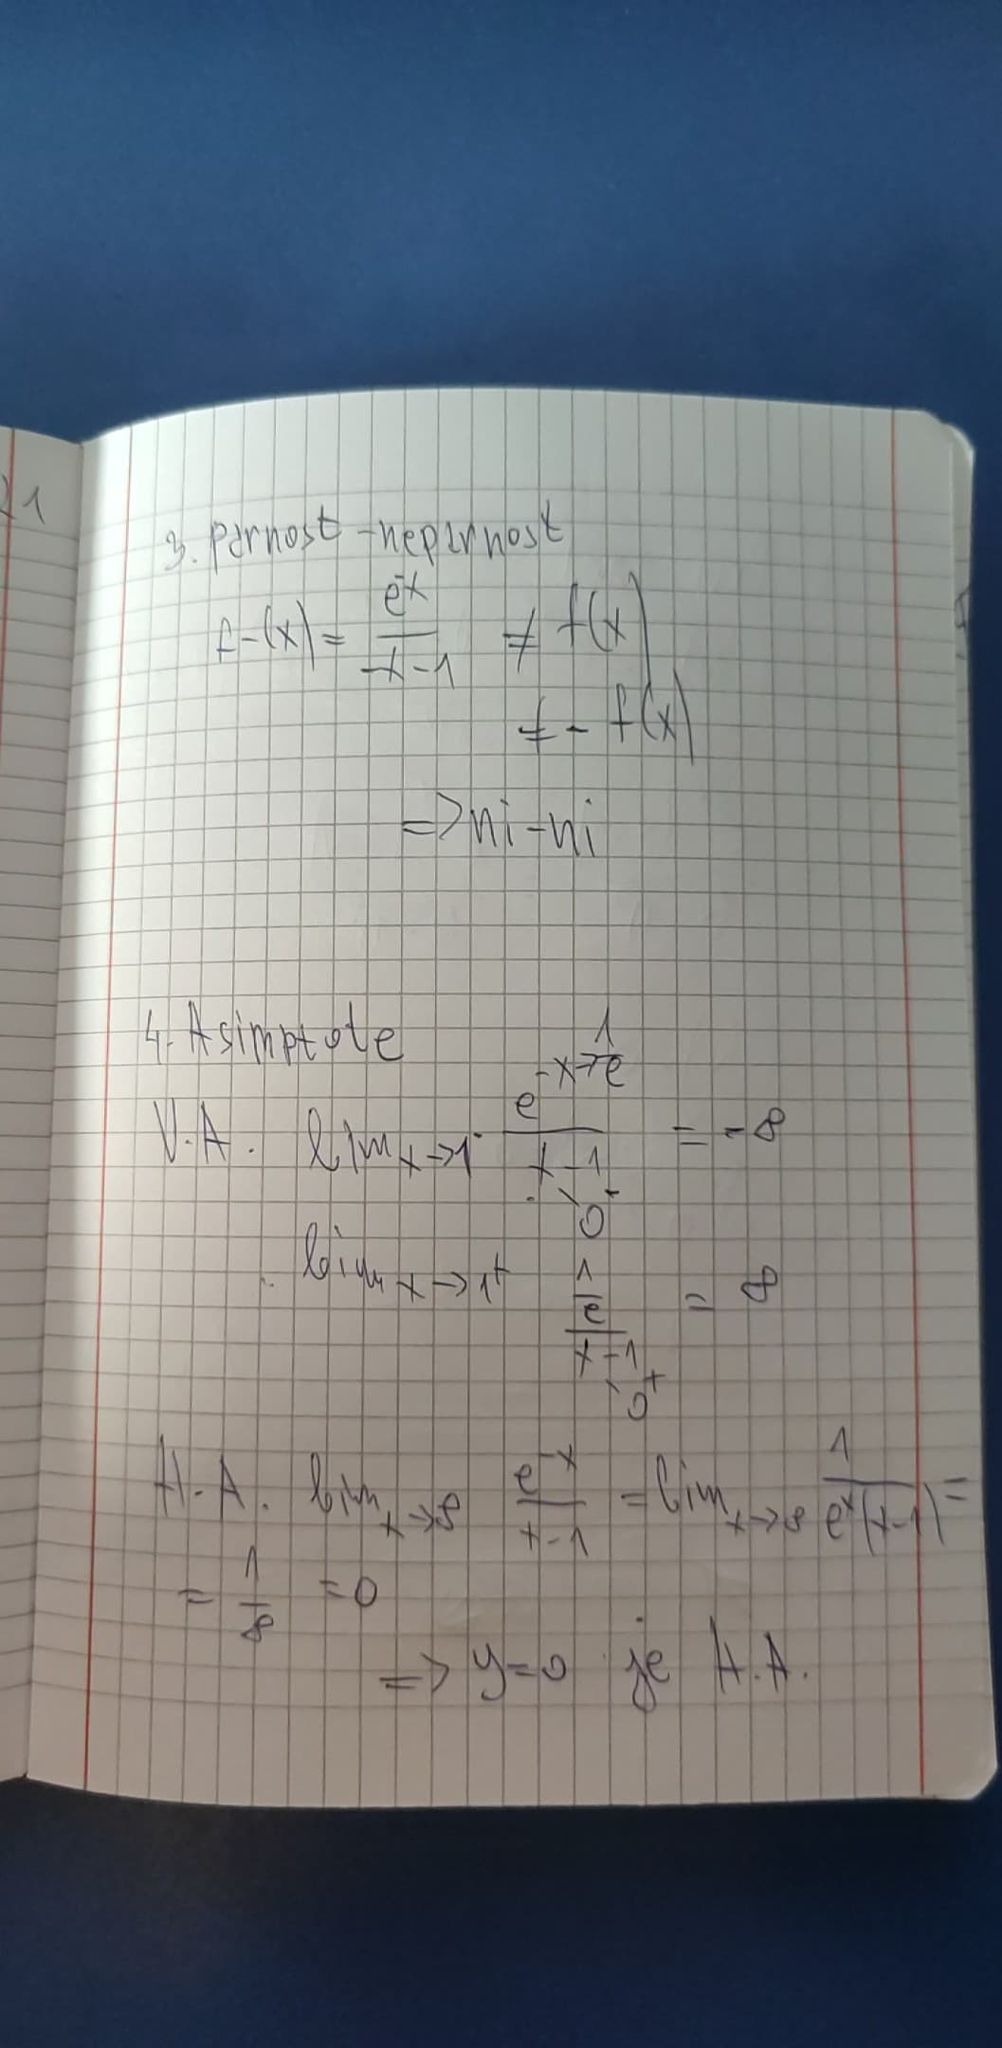 21
3. Parnost-neparnost
f-(x) = e^x / (-x-1) ≠ f(x)
≠ - f(x)
=> ni-ni
4. Asimptote
V.A. lim x→1⁻ e^(-x → 1/e) / (x-1 → 0⁻) = -∞
lim x→1⁺ (1/e) / (x-1 → 0⁺) = ∞
H.A. lim x→∞ e^(-x) / (x-1) = lim x→∞ 1 / (e^x(x-1)) =
= 1/∞ = 0
=> y=0 je H.A.